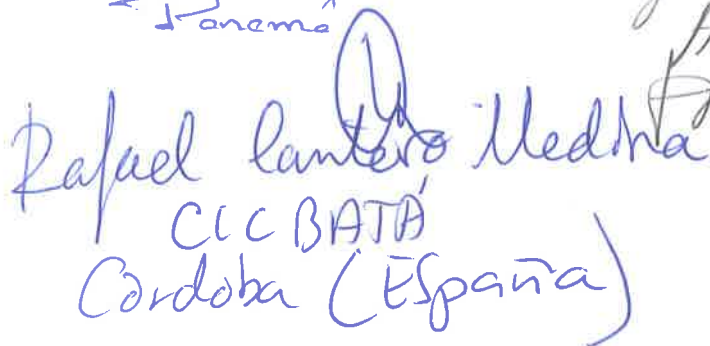 Panamá
Rafael Cantero Medina
CIC BATÁ
Córdoba (España)